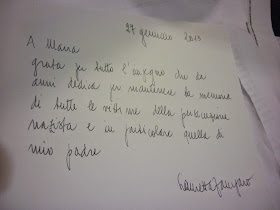 27 gennaio 2013
A Maria
grata per tutto l'impegno che da
anni dedica per mantenere la memoria
di tutte le vittime della persecuzione
nazista e in particolare quella di
mio padre